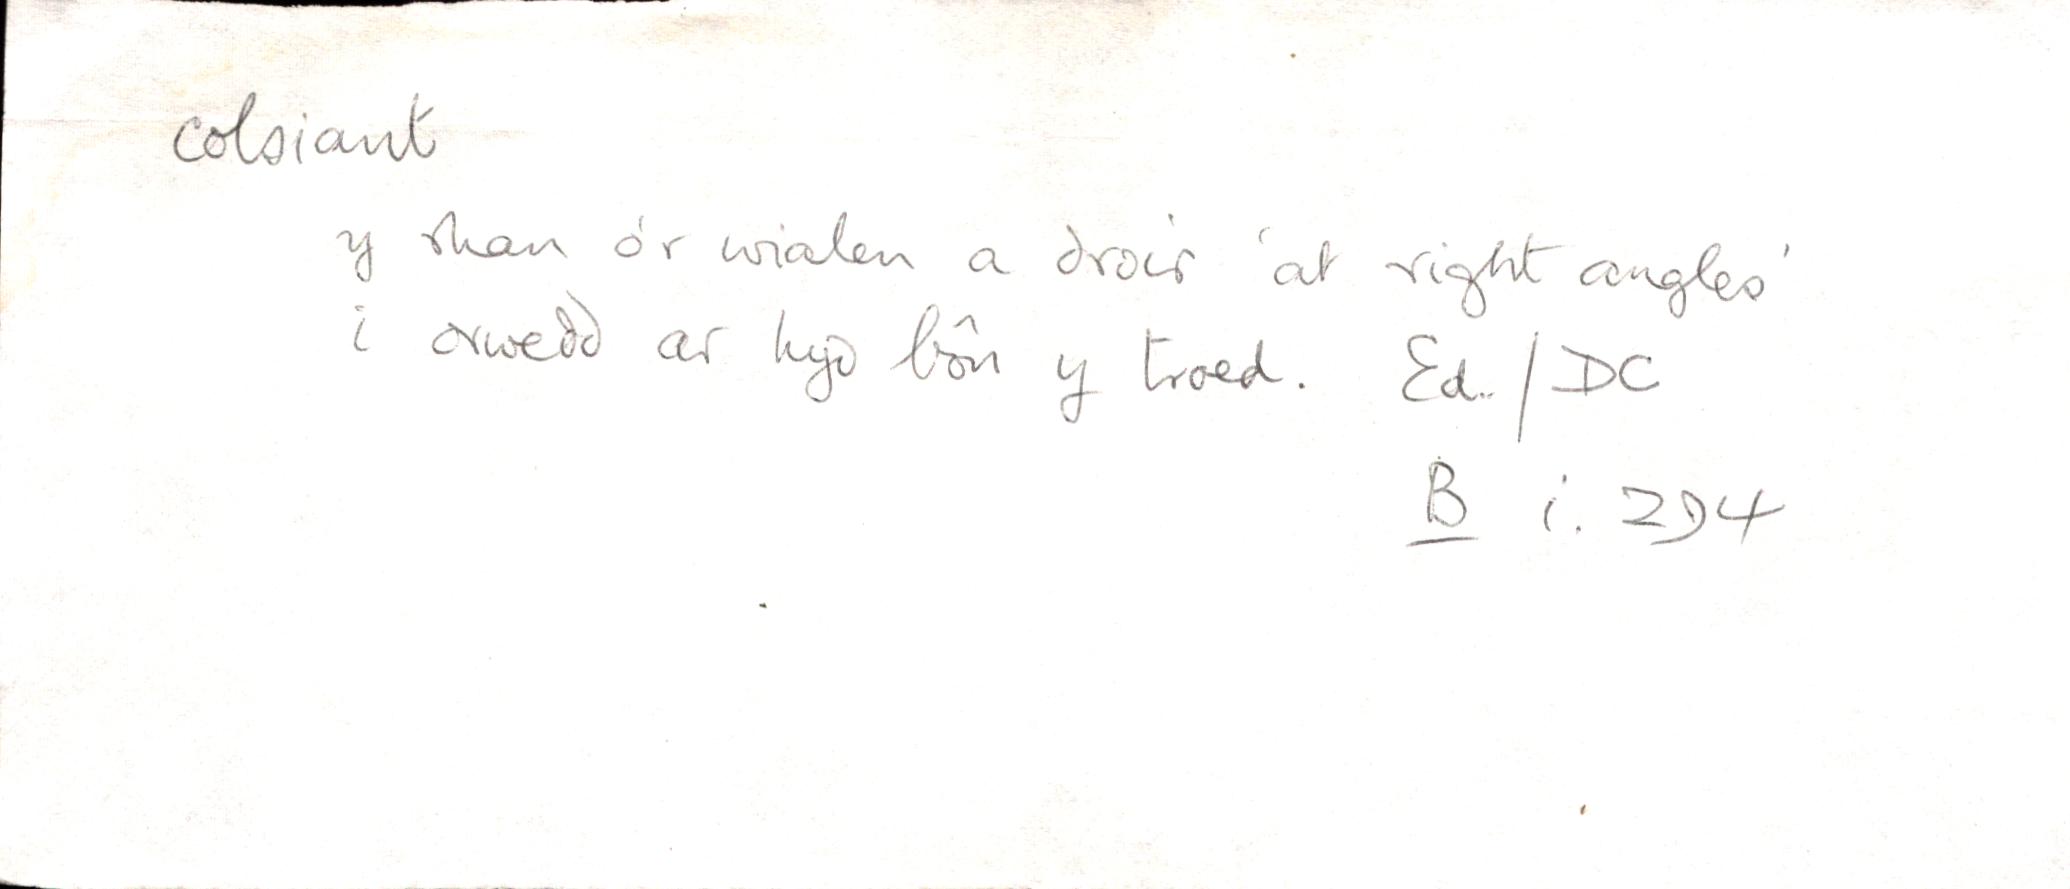 colsiant
y rhan o'r wialen a droir 'at right angles'
i orwedd ar hyd bôn y troed. Ed./DC
B i. 294